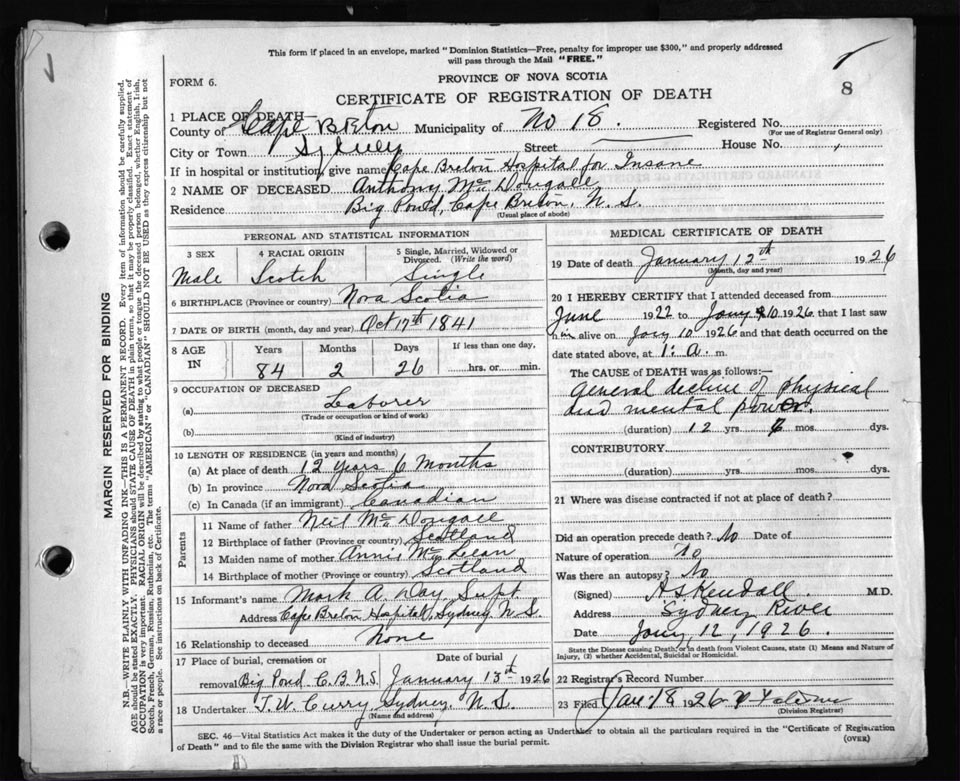 This form if placed in an envelope, marked "Dominion Statistics—Free, penalty for improper use $300," and properly addressed
will pass through the Mail "FREE."
8
PROVINCE OF NOVA SCOTIA
FORM 6.
CERTIFICATE OF REGISTRATION OF DEATH
1 PLACE OF DEATH
County of Cape Breton Municipality of No 18. Registered No.
(For use of Registrar General only)
City or Town Sydney Street House No.
If in hospital or institution, give name Cape Breton Hospital for Insane
2 NAME OF DECEASED Anthony Mc Dougall
Residence Big Pond, Cape Breton, N. S.
(Usual place of abode)
PERSONAL AND STATISTICAL INFORMATION
3 SEX 4 RACIAL ORIGIN 5 Single, Married, Widowed or
Divorced. (Write the word)
Male Scotch Single
6 BIRTHPLACE (Province or country) Nova Scotia
7 DATE OF BIRTH (month, day and year) Oct 17th 1841
8 AGE IN Years Months Days If less than one day,
84 2 26 hrs. or min.
9 OCCUPATION OF DECEASED
(a) Laborer
(Trade or occupation or kind of work)
(b)
(Kind of industry)
10 LENGTH OF RESIDENCE (in years and months)
(a) At place of death 12 Years 6 Months
(b) In province Nova Scotia
(c) In Canada (if an immigrant) Canadian
Parents
11 Name of father Neil Mc Dougall
12 Birthplace of father (Province or country) Scotland
13 Maiden name of mother Annie Mc Lean
14 Birthplace of mother (Province or country) Scotland
15 Informant's name Mark A. Day, Supt
Address Cape Breton Hospital, Sydney N. S.
16 Relationship to deceased None
17 Place of burial, cremation or Date of burial
removal Big Pond C. B. N. S. January 13th 1926
18 Undertaker T. W. Curry, Sydney, N. S.
(Name and address)
MEDICAL CERTIFICATE OF DEATH
19 Date of death January 12th 1926
(Month, day and year)
20 I HEREBY CERTIFY that I attended deceased from
June 1922 to Jany 10 1926, that I last saw
him alive on Jany 10 1926 and that death occurred on
date stated above, at 1. a. m.
The CAUSE OF DEATH was as follows:—
General decline of physical
and mental power.
(duration) 12 yrs. 6 mos. dys.
CONTRIBUTORY
(duration) yrs. mos. dys.
21 Where was disease contracted if not at place of death?
Did an operation precede death? No Date of
Nature of operation No
Was there an autopsy? No
(Signed) A S Kendall M.D.
Address Sydney River
Date Jany, 12, 1926.
State the Disease causing Death, or in death from Violent Causes, state (1) Means and Nature of
Injury, (2) whether Accidental, Suicidal or Homicidal.
22 Registrar's Record Number
23 Filed Jan 18 1926
(Division Registrar)
SEC. 46—Vital Statistics Act makes it the duty of the Undertaker or person acting as Undertaker to obtain all the particulars required in the "Certificate of Registration
of Death" and to file the same with the Division Registrar who shall issue the burial permit. (OVER)
MARGIN RESERVED FOR BINDING
N.B.—WRITE PLAINLY WITH UNFADING INK—THIS IS A PERMANENT RECORD. Every item of information should be carefully supplied.
AGE should be stated EXACTLY. PHYSICIANS should STATE CAUSE OF DEATH in plain terms, so that it may be properly classified. Exact statement of
OCCUPATION is very important. RACIAL ORIGIN will be described by stating to what people or tongue the deceased person belonged, whether English, Irish,
Scotch, French, German, Russian, Ruthenian, etc. The terms "AMERICAN" or "CANADIAN" SHOULD NOT BE USED as they express citizenship but not
a race or people. See instructions on back of Certificate.